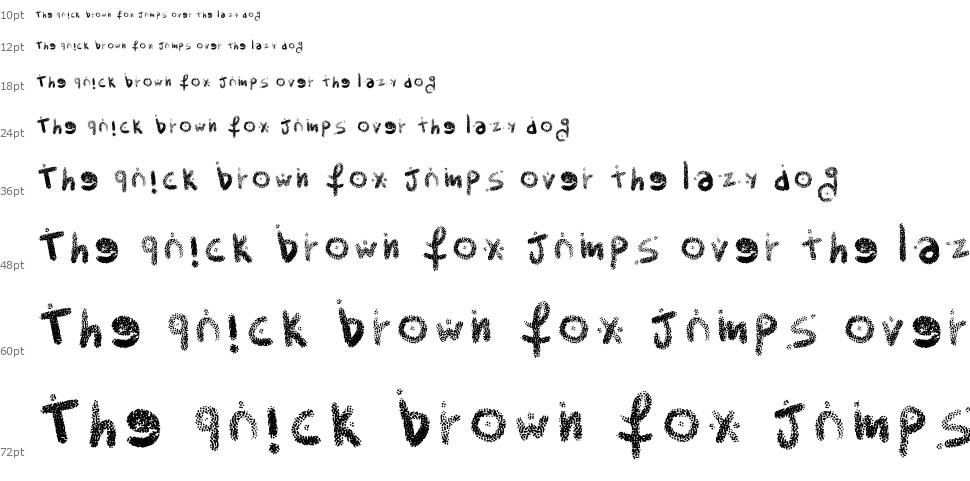 10pt The quick brown fox jumps over the lazy dog
12pt The quick brown fox jumps over the lazy dog
18pt The quick brown fox jumps over the lazy dog
24pt The quick brown fox jumps over the lazy dog
36pt The quick brown fox jumps over the lazy dog
48pt The quick brown fox jumps over the laz
60pt The quick brown fox jumps over
72pt The quick brown fox jumps